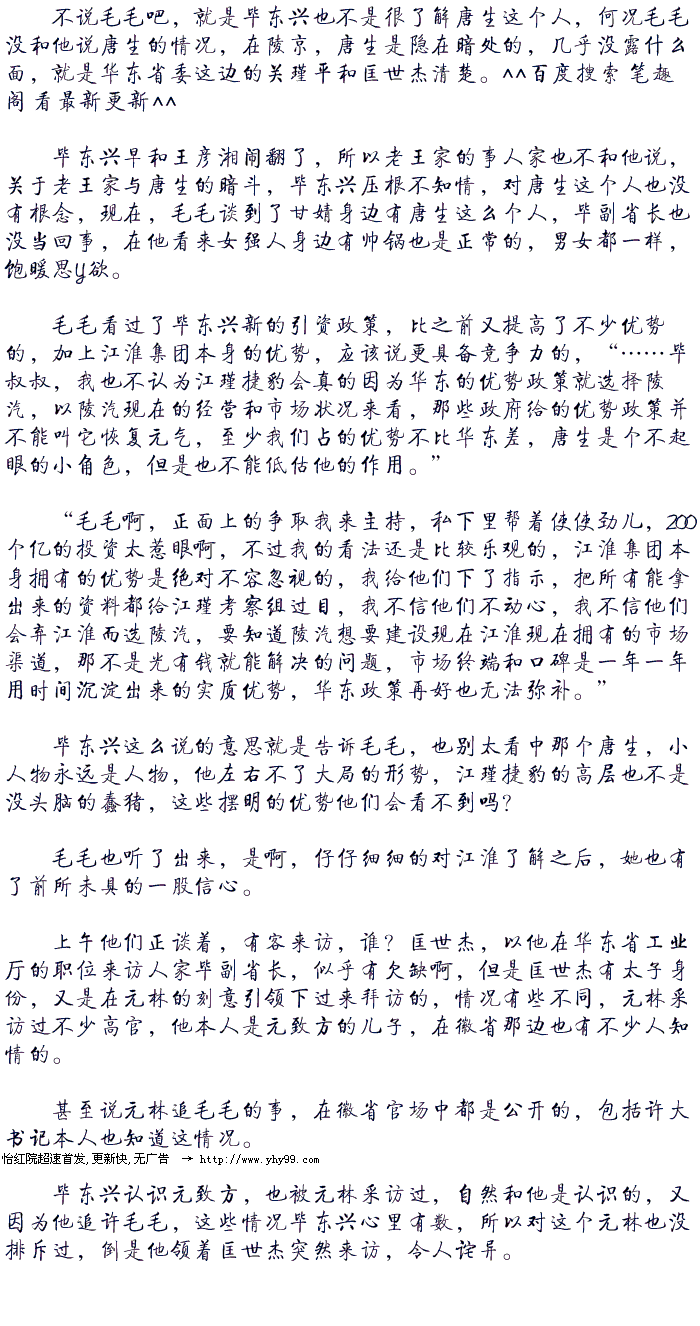 不说毛毛吧，就是毕东兴也不是很了解唐生这个人，何况毛毛
没和他说唐生的情况，在陵京，唐生是隐在暗处的，几乎没露什么
面，就是华东省委这边的关瑾平和匡世杰清楚。^^百度搜索 笔趣
阁 看最新更新^^
毕东兴早和王彦湘闹翻了，所以老王家的事人家也不和他说，
关于老王家与唐生的暗斗，毕东兴压根不知情，对唐生这个人也没
有根念，现在，毛毛谈到了甘婧身边有唐生这么个人，毕副省长也
没当回事，在他看来女强人身边有帅锅也是正常的，男女都一样，
饱暖思y欲。
毛毛看过了毕东兴新的引资政策，比之前又提高了不少优势
的，加上江淮集团本身的优势，应该说更具备竞争力的，“……毕
叔叔，我也不认为江瑾捷豹会真的因为华东的优势政策就选择陵
汽，以陵汽现在的经营和市场状况来看，那些政府给的优势政策并
不能叫它恢复元气，至少我们占的优势不比华东差，唐生是个不起
眼的小角色，但是也不能低估他的作用。”
“毛毛啊，正面上的争取我来主持，私下里帮着使使劲儿，200
个亿的投资太惹眼啊，不过我的看法还是比较乐观的，江淮集团本
身拥有的优势是绝对不容忽视的，我给他们下了指示，把所有能拿
出来的资料都给江瑾考察组过目，我不信他们不动心，我不信他们
会弃江淮而选陵汽，要知道陵汽想要建设现在江淮现在拥有的市场
渠道，那不是光有钱就能解决的问题，市场终端和口碑是一年一年
用时间沉淀出来的实质优势，华东政策再好也无法弥补。”
毕东兴这么说的意思就是告诉毛毛，也别太看中那个唐生，小
人物永远是人物，他左右不了大局的形势，江瑾捷豹的高层也不是
没头脑的蠢猪，这些摆明的优势他们会看不到吗？
毛毛也听了出来，是啊，仔仔细细的对江淮了解之后，她也有
了前所未具的一股信心。
上午他们正谈着，有客来访，谁？匡世杰，以他在华东省工业
厅的职位来访人家毕副省长，似乎有欠缺啊，但是匡世杰有太子身
份，又是在元林的刻意引领下过来拜访的，情况有些不同，元林采
访过不少高官，他本人是元致方的儿子，在徽省那边也有不少人知
情的。
甚至说元林追毛毛的事，在徽省官场中都是公开的，包括许大
书记本人也知道这情况。
怡红院超速首发,更新快,无广告 → http://www.yhy99.com
毕东兴认识元致方，也被元林采访过，自然和他是认识的，又
因为他追许毛毛，这些情况毕东兴心里有数，所以对这个元林也没
排斥过，倒是他领着匡世杰突然来访，令人诧异。